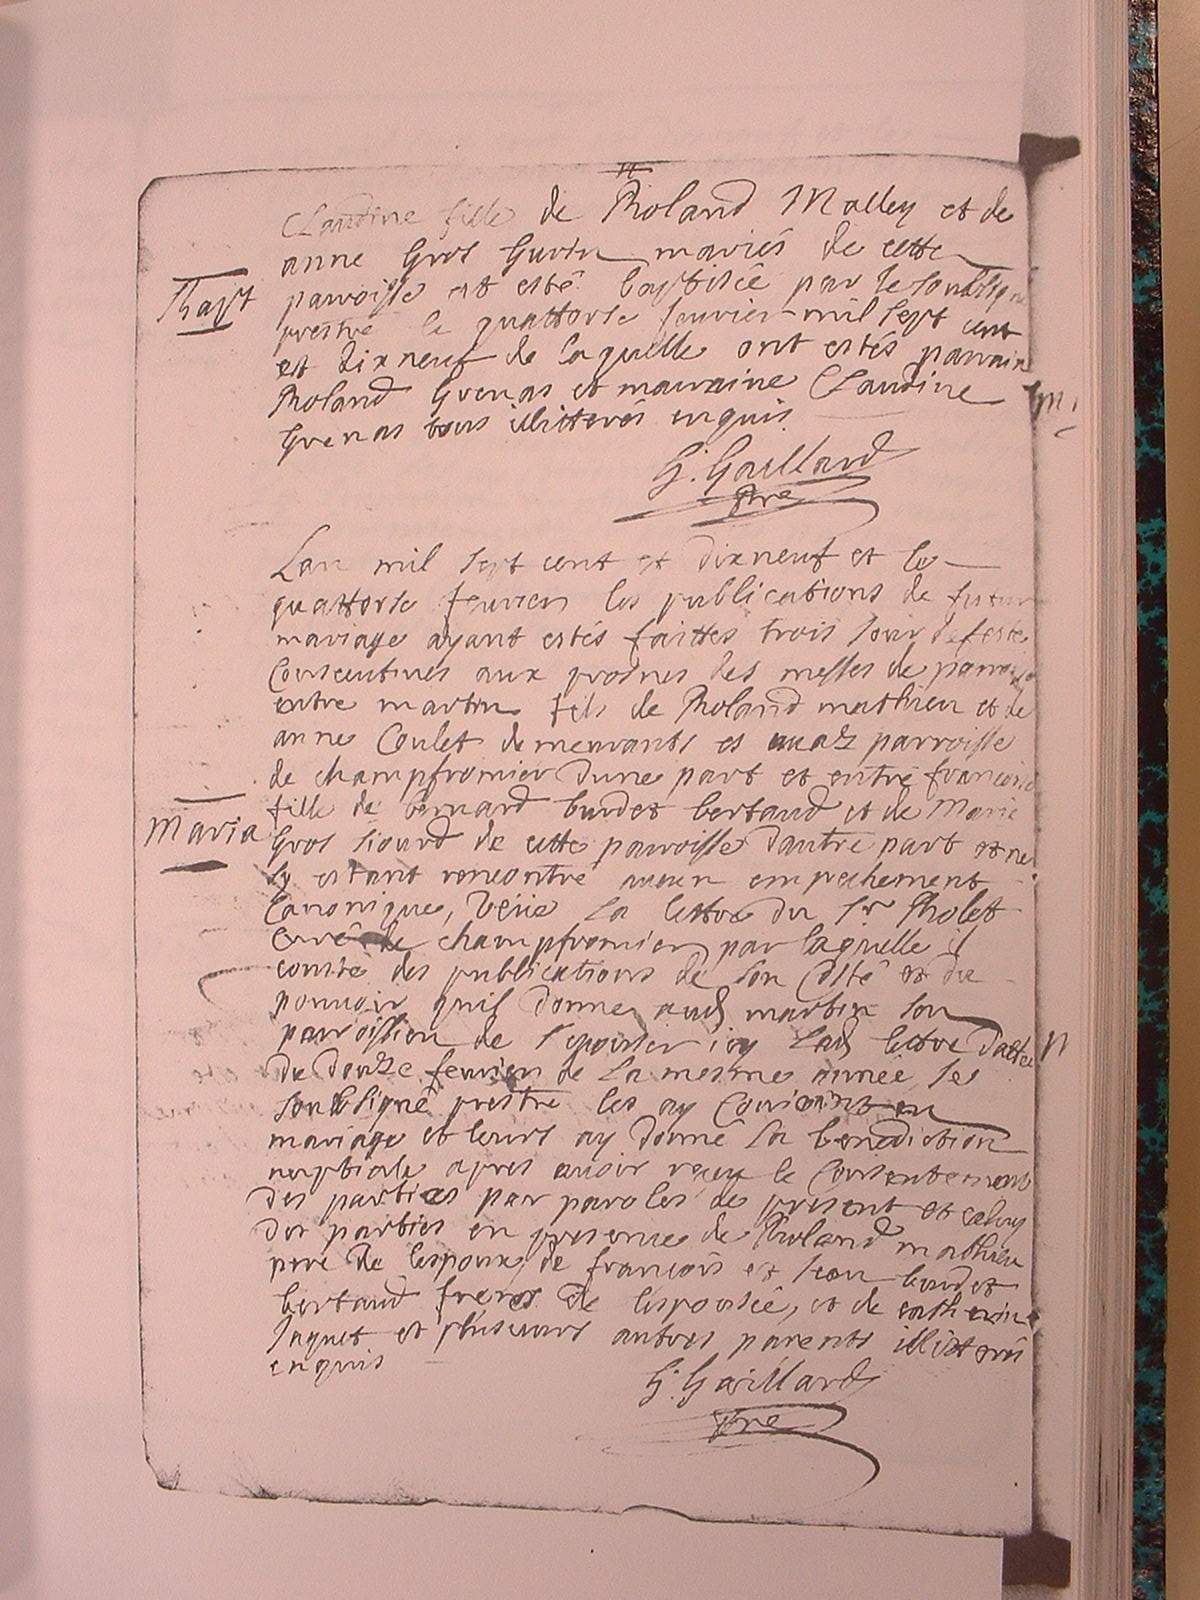 Claudine fille de Roland Malley et de
anne Gros Gurin mariés de cette
Bapt
parroisse est esté baptisée par le soubsigné
prestre le quattorse feuvrier mil sept cent
et dixneuf de laquelle ont estés parrain
Roland Grenas et marraine Claudine
Grenas tous illitterés enquis
G. Gaillard
ptre
Lan mil sept cent et dixneuf et le
quattorse feuvrier les publications de futur
mariage ayant estés faittes trois jour de feste
Consecutives aux prosnes des messes de parroisse
entre martin fils de Roland mathieu et de
anne Coulet demeurants es parroisse
de champfromier dune part et entre francoise
fille de bernard burdet bertrand et de Marie
Maria
Gros siourd de cette parroisse dautre part et ne
sy estant rencontré aucun empechement
Canonique, veüe la lettre du Sr Rolet
curé de champfromier par laquelle il
conste des publications de son costé et du
pouvoir quil donne aud martin son
parroissien de sepouser icy Lad lettre dattée
du douze feuvrier de la mesme année, je
soubsigné prestre les ay Conioints en
mariage et leurs ay donné la benediction
nuptiale apres avoir receu le Consentement
des parties par paroles de present et celuy
des parties en presence de Roland mathieu
pere de lespoux, de francois et Jean burdet
bertrand freres de lespousée, et de catherine
Juquet et plusieurs autres parents illitterés
enquis
G. Gaillard
ptre